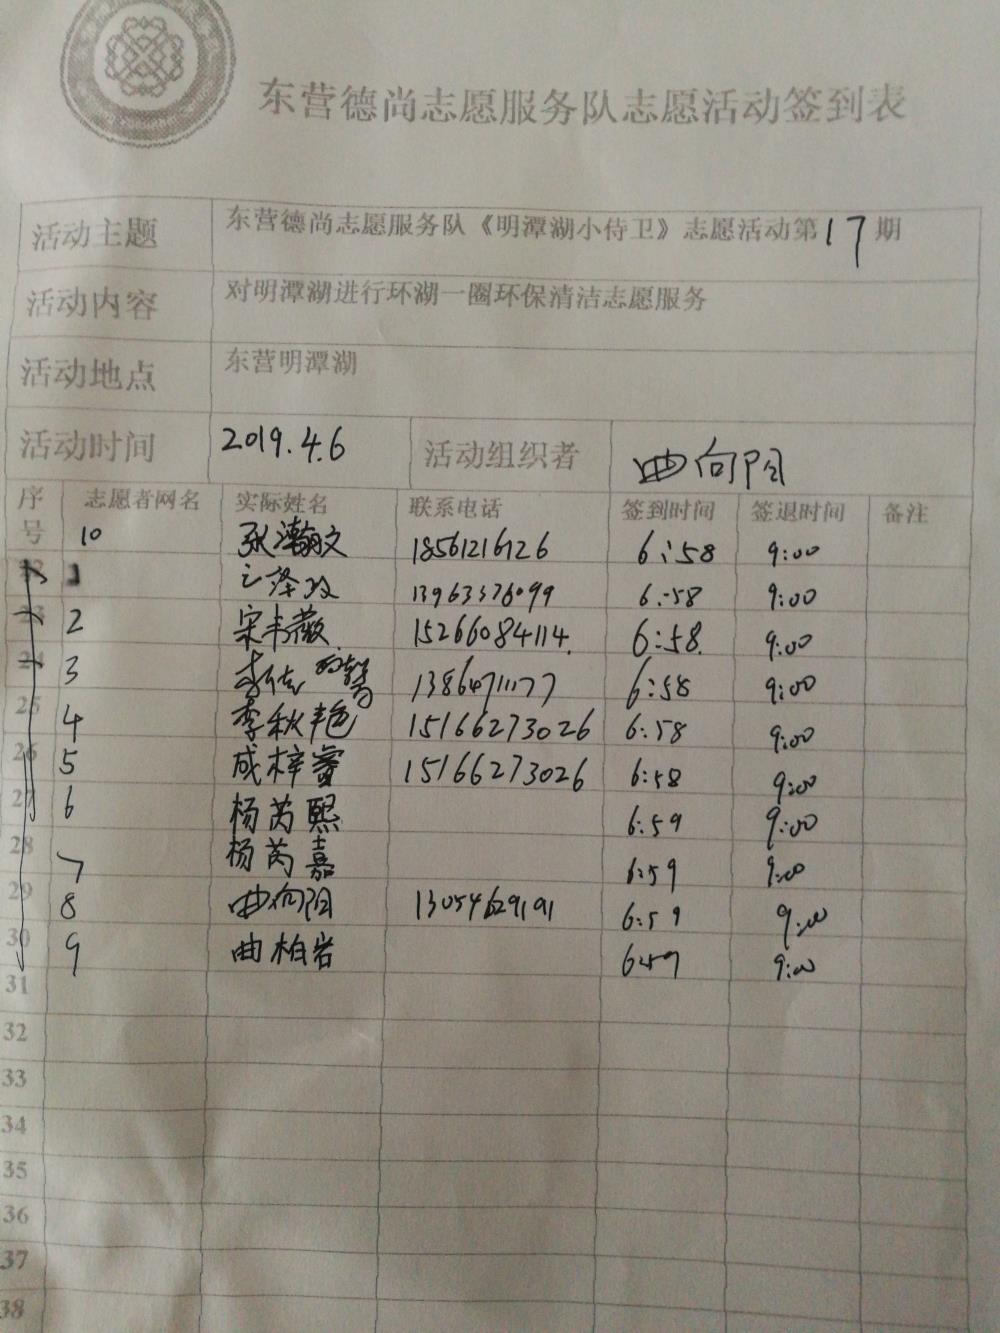 东营德尚志愿服务队志愿活动签到表
活动主题 东营德尚志愿服务队《明潭湖小侍卫》志愿活动第17期
活动内容 对明潭湖进行环湖一圈环保清洁志愿服务
活动地点 东营明潭湖
活动时间 2019.4.6 活动组织者 曲向阳
序号 志愿者网名 实际姓名 联系电话 签到时间 签退时间 备注
10 张瀚文 18561216126 6:58 9:00
1 13963376099 6:58 9:00
23 2 宋韦薇 15266084114 6:58 9:00
24 3 13864711177 6:58 9:00
25 4 李秋艳 15166273026 6:58 9:00
26 5 成梓睿 15166273026 6:58 9:00
27 6 杨芮熙 6:59 9:00
28 7 杨芮嘉 6:59 9:00
29 8 曲向阳 13054629191 6:59 9:00
30 9 曲柏岩 6:59 9:00
31
32
33
34
35
36
37
38